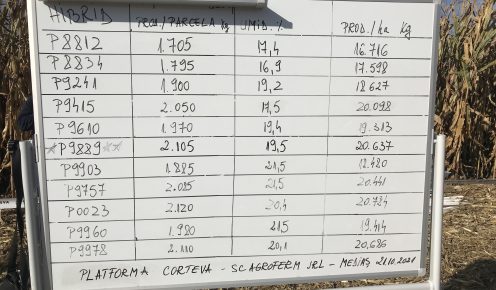 HIBRID PROD/PARCELA Kg UMID. % PROD./ha Kg
P8812 1.705 17,4 16.716
P8834 1.795 16,9 17.598
P9241 1.900 19,2 18.627
P9415 2.050 17,5 20.098
P9610 1.970 19,4 19.313
*P9889** 2.105 19,5 20.637
P9903 1.885 21,5 18.480
P9757 2.085 21,5 20.441
P0023 2.120 20,4 20.784
P9960 1.980 21,5 19.414
P9978 2.110 20,1 20,686
PLATFORMA CORTEVA - SC AGROFERM SRL - MEDIAȘ 21.10.2021